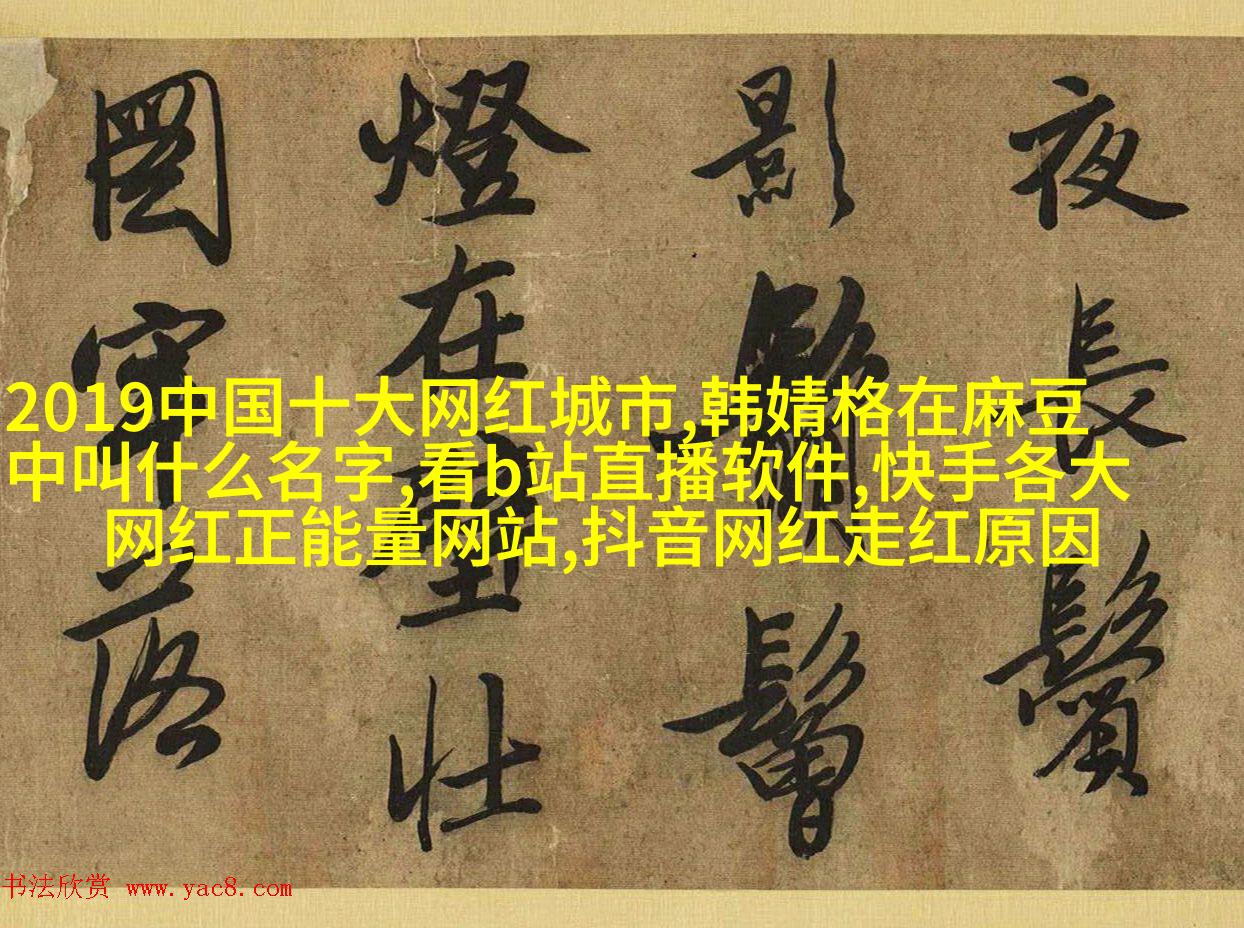 夜長鬢
影鬙
燈在壯
圖牢落
2019中国十大网红城市,韩婧格在麻豆
中叫什么名字,看b站直播软件,快手各大
网红正能量网站,抖音网红走红原因
书法欣赏 www.yac8.com